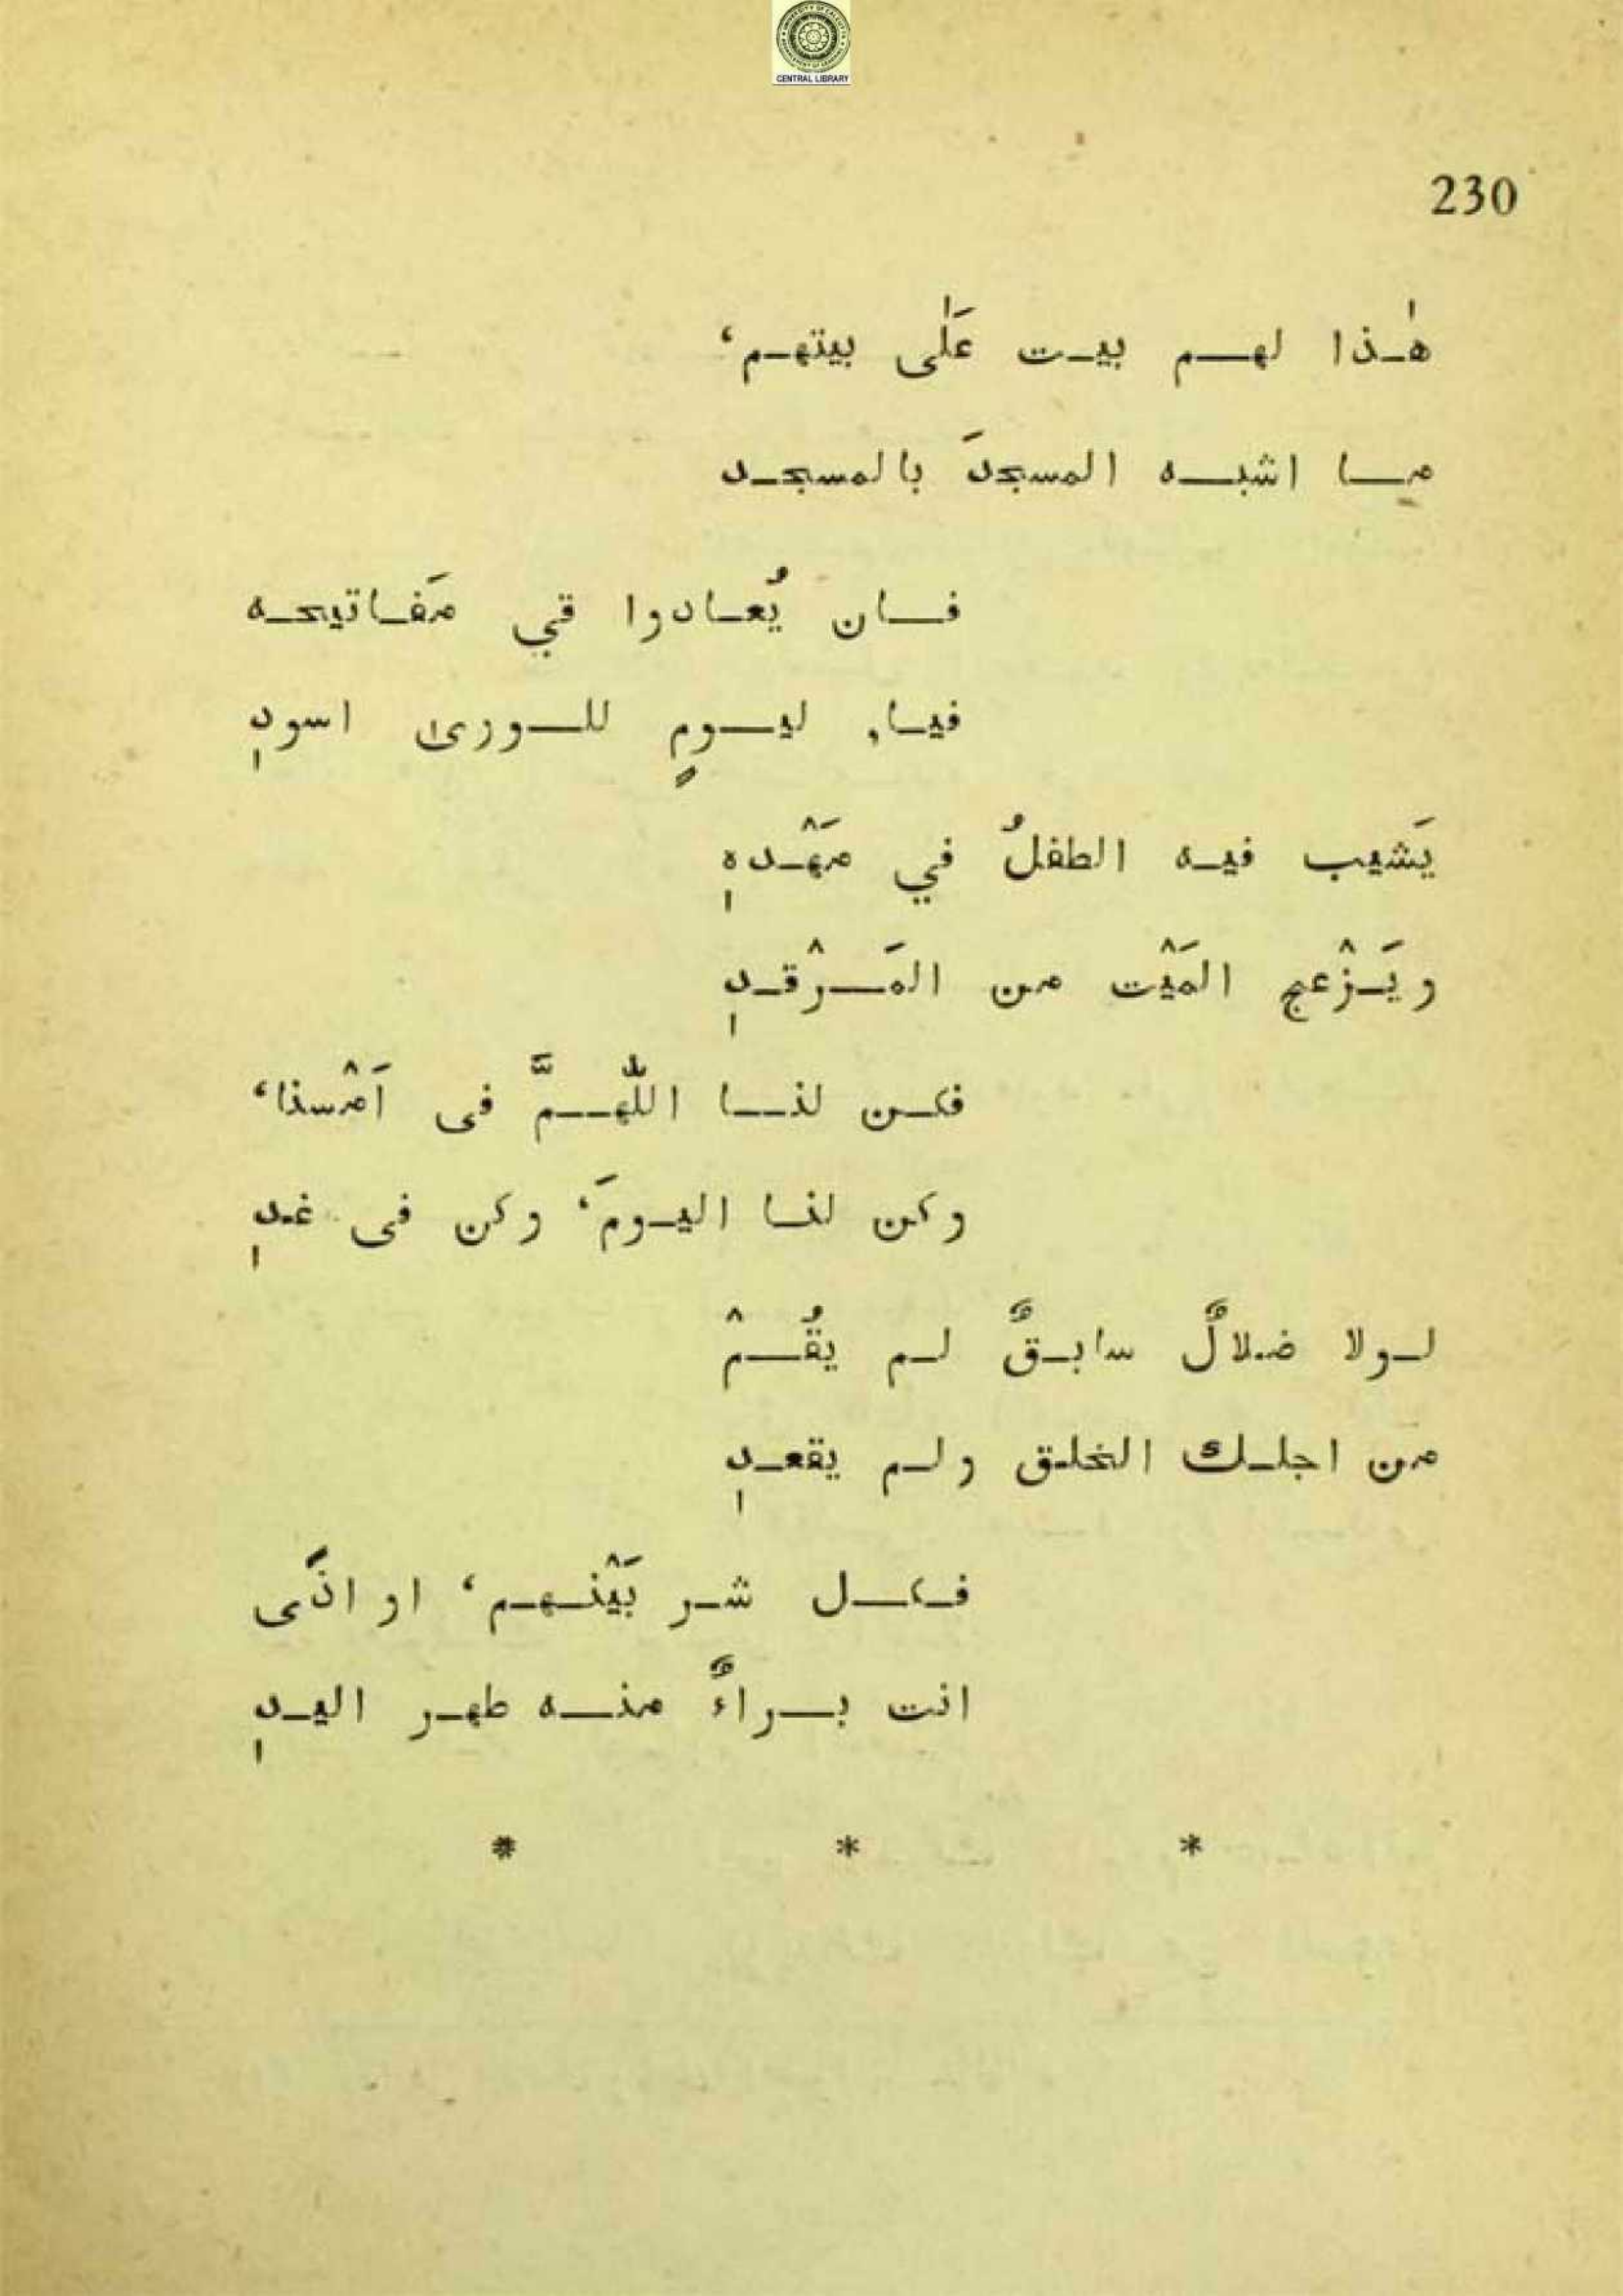 CENTRAL LIBRARY
230
هٰذا لهم بيت عَلٰى بيتهم،
ما اشبه المسجدَ بالمسجد
فان يُعادوا قي مَفاتيحه
فيا, ليومٍ للورى اسودِ
يَشيب فيه الطفلُ في مَهْدهِ
ويَزْعج المَيْت من المَرْقدِ
فكن لنا اللّهمَّ فى اَمْسنا،
وكن لنا اليومَ، وكن فى غدِ
لولا ضلالٌ سابقٌ لم يقُمْ
من اجلك الخلق ولم يقعدِ
فكل شر بَيْنهم، او اذَى
انت براءٌ منه طهر اليدِ
* * *